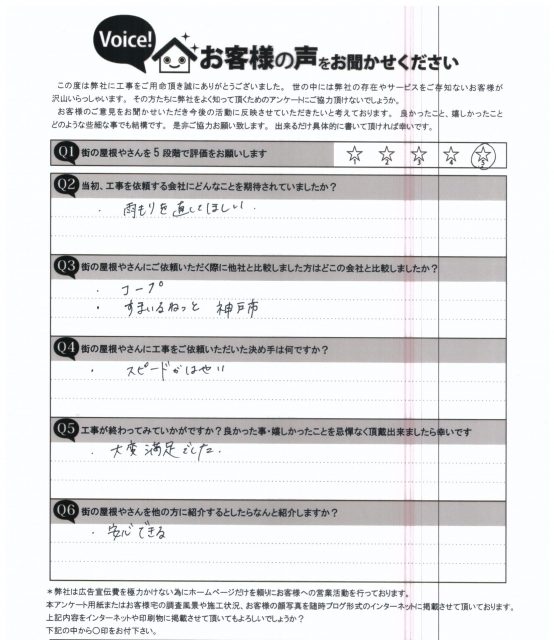 Voice!
お客様の声をお聞かせください
この度は弊社に工事をご用命頂き誠にありがとうございました。 世の中には弊社の存在やサービスをご存知ないお客様が
沢山いらっしゃいます。 その方たちに弊社をよく知って頂くためのアンケートにご協力頂けないでしょうか。
お客様のご意見をお聞かせいただき今後の活動に反映させていただきたいと考えております。 良かったこと、嬉しかったこと
どのような些細な事でも結構です。 是非ご協力お願い致します。 出来るだけ具体的に書いて頂ければ幸いです。
Q1 街の屋根やさんを5段階で評価をお願いします
1 2 3 4 5
Q2 当初、工事を依頼する会社にどんなことを期待されていましたか？
・ 雨もりを直してほしい.
Q3 街の屋根やさんにご依頼いただく際に他社と比較しました方はどこの会社と比較しましたか？
・ コープ
・ すまいるねっと 神戸市
Q4 街の屋根やさんに工事をご依頼いただいた決め手は何ですか？
・ スピードがはやい
Q5 工事が終わってみていかがですか？良かった事・嬉しかったことを忌憚なく頂戴出来ましたら幸いです
・ 大変満足でした.
Q6 街の屋根やさんを他の方に紹介するとしたらなんと紹介しますか？
・ 安心できる
＊弊社は広告宣伝費を極力かけない為にホームページだけを頼りにお客様への営業活動を行っております。
本アンケート用紙またはお客様宅の調査風景や施工状況、お客様の顔写真を随時ブログ形式のインターネットに掲載させて頂いております。
上記内容をインターネットや印刷物に掲載させて頂いてもよろしいでしょうか？
下記の中から〇印をお付下さい。